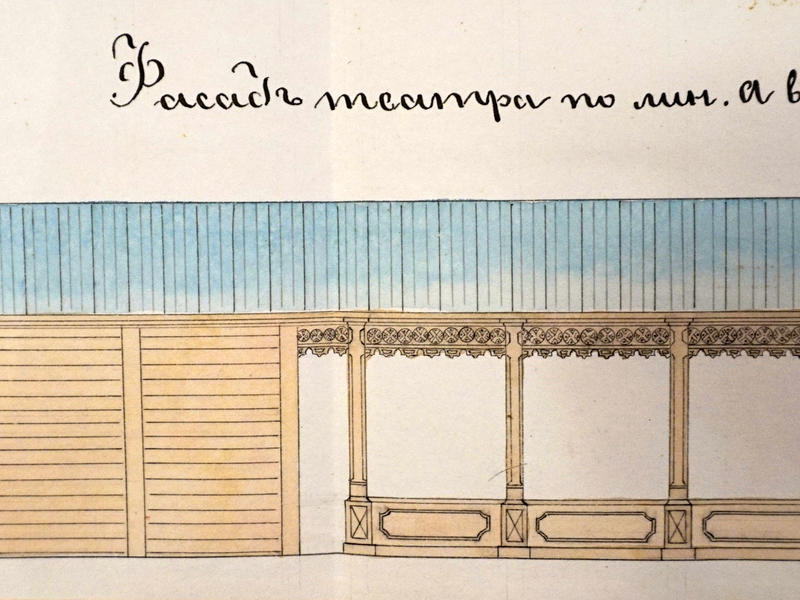 Фасадъ театра по лин. а в